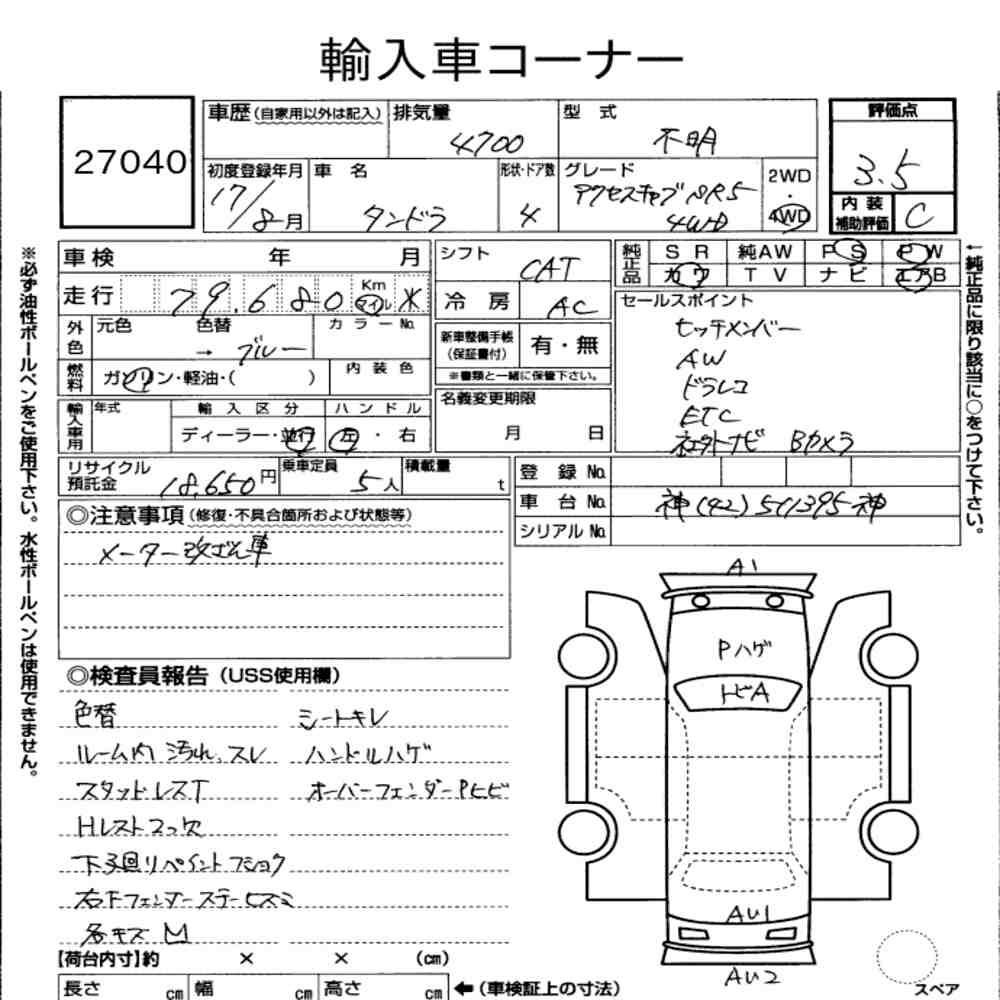 輸入車コーナー
27040
車歴(自家用以外は記入) 排気量 4700 型 式 不明 評価点 3.5
初度登録年月 17/8月 車 名 タンドラ 形状・ドア数 4 グレード アクセスキャブ SR5 4WD 2WD・4WD
内装補助評価 C
車検 年 月 シフト CAT
純正品 SR 純AW PS PW
カワ TV ナビ エアB
走行 79,680 Km マイル ※ 冷房 AC
セールスポイント
ヒッチメンバー
AW
ドラレコ
ETC
社外ナビ Bカメラ
外色 元色 色替 → ブルー カラーNo.
新車整備手帳(保証書付) 有・無
※書類と一緒に保管下さい。
燃料 ガソリン・軽油・( ) 内装色
名義変更期限 月 日
輸入車用 年式 輸入区分 ハンドル
ディーラー・並行 左・右
リサイクル預託金 18,650円 乗車定員 5人 積載量 t
登録No.
車台No. 神(42)511395神
シリアルNo.
◎注意事項(修復・不具合箇所および状態等)
メーター改ざん車
◎検査員報告(USS使用欄)
色替 シートキレ
ルーム内 汚れ、スレ ハンドルハゲ
スタッドレスT オーバーフェンダーPヒビ
Hレスト2ヶ欠
下廻リペイントフショク
右Fフェンダーステーヒズミ
各キズ凹
A1
Pハゲ
トビA
AU1
AU2
スペア
【荷台内寸】約 × × (cm)
長さ cm 幅 cm 高さ cm ←(車検証上の寸法)
※必ず油性ボールペンをご使用下さい。水性ボールペンは使用できません。
←純正品に限り該当に○をつけて下さい。